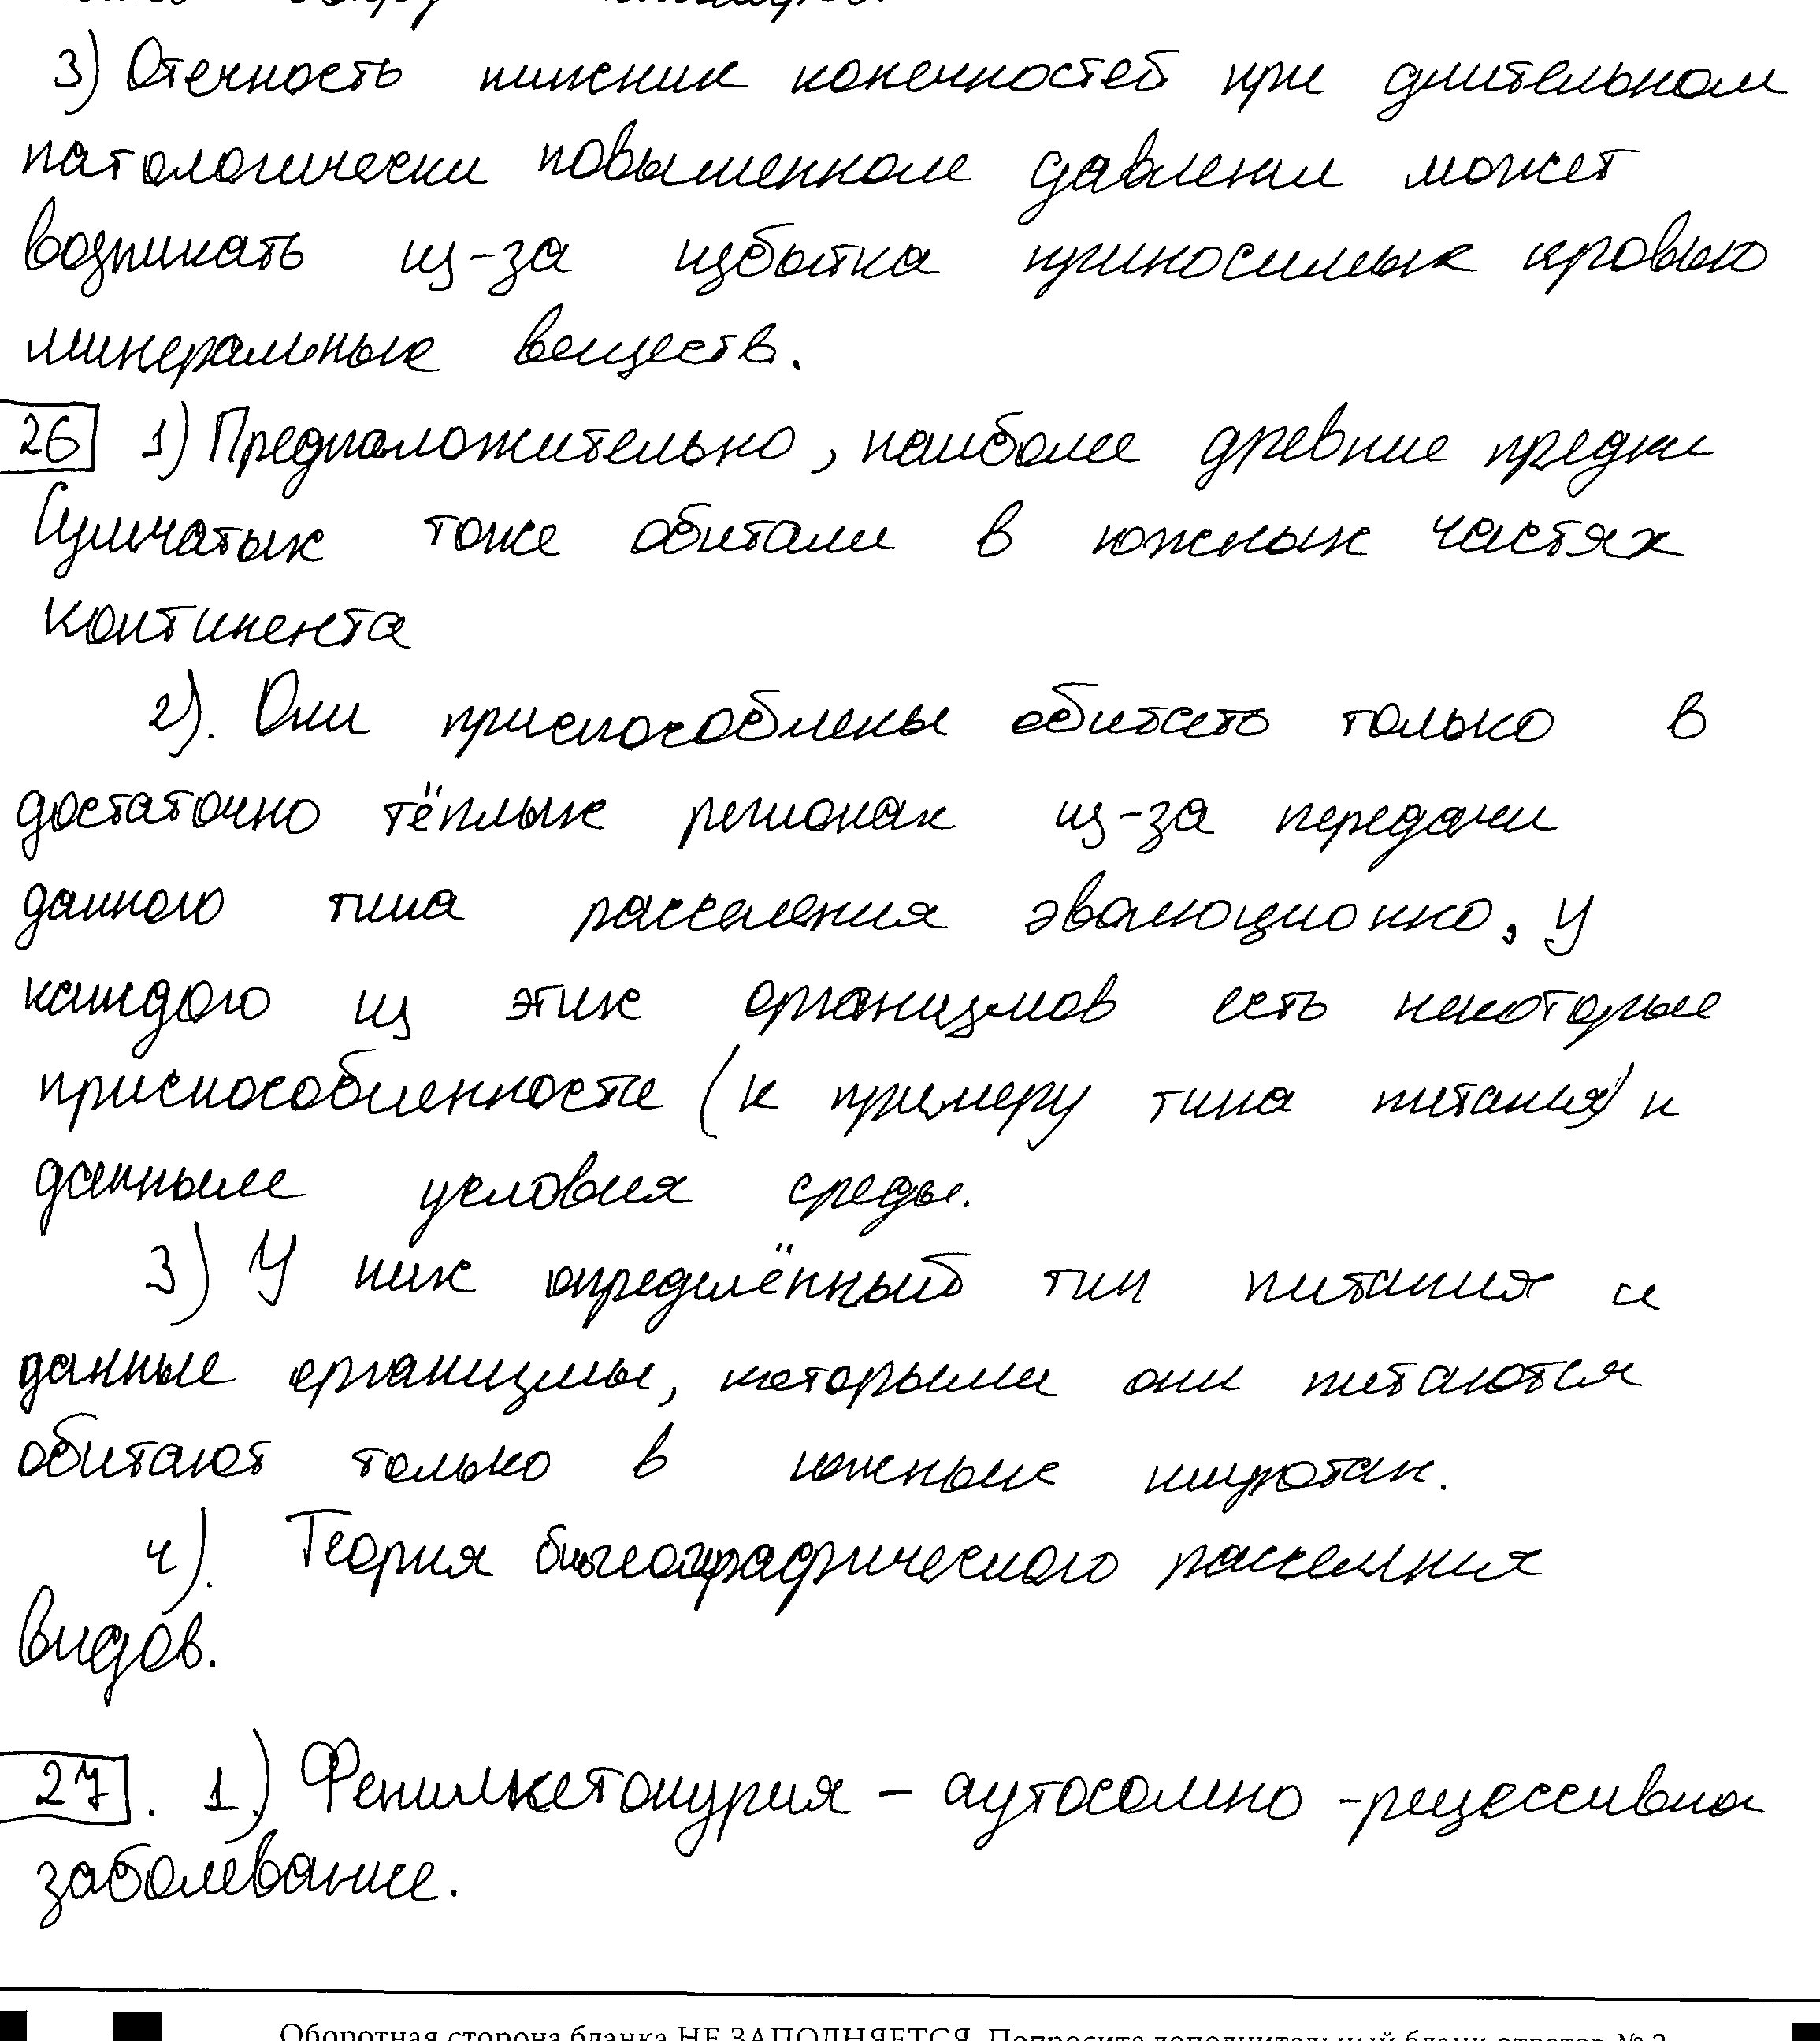 3) Отечность нижних конечностей при длительном
патологически повышенном давлении может
возникать из-за избытка приносимых кровью
минеральных веществ.
26 1) Предположительно, наиболее древние предки
Сумчатых тоже обитали в южных частях
континента
2). Они приспособлены обитать только в
достаточно тёплых регионах из-за передачи
данного типа расселения эволюционно, У
каждого из этих организмов есть некоторые
приспособленности (к примеру типа питания) к
данным условия среды.
3) У них определённый тип питания и
данные организмы, которыми они питаются
обитают только в южных широтах.
4). Теория биогеографического расселения
видов.
27. 1.) Фенилкетонурия - аутосомно-рецессивно
заболевание.
Оборотная сторона бланка НЕ ЗАПОЛНЯЕТСЯ. Попросите дополнительный бланк ответов № 2